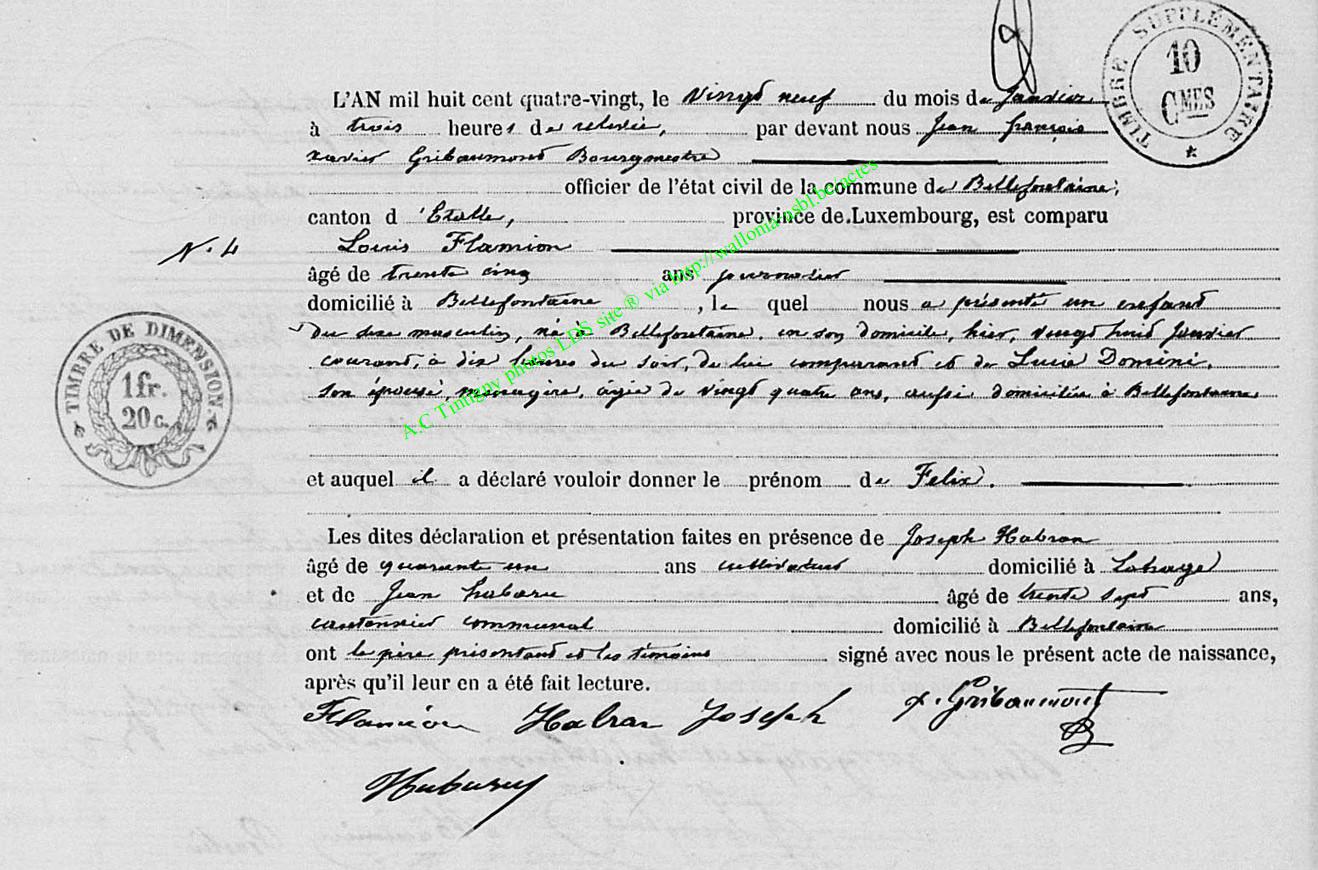 TIMBRE SUPPLÉMENTAIRE
10
CMES
L'AN mil huit cent quatre-vingt, le vingt neuf du mois de Janvier
à trois heures de relevée, par devant nous Jean françois
xavier Gribaumont Bourgmestre
officier de l'état civil de la commune de Bellefontaine,
canton d'Etalle, province de Luxembourg, est comparu
N. 4
Louis Flamion
âgé de trente cinq ans journalier
domicilié à Bellefontaine, le quel nous a présenté un enfant
du sexe masculin, né à Bellefontaine, en son domicile, hier, vingt huit janvier
courant, à dix heures du soir, de lui comparant et de Lucie Domini,
son épouse, ménagère, âgée de vingt quatre ans, aussi domiciliée à Bellefontaine
TIMBRE DE DIMENSION
1 fr.
20 c.
et auquel il a déclaré vouloir donner le prénom de Felix.
Les dites déclaration et présentation faites en présence de Joseph Habran
âgé de quarante un ans cultivateur domicilié à Lahage
et de Jean hubaru âgé de trente sept ans,
cantonnier communal domicilié à Bellefontaine
ont le père présentant et les témoins signé avec nous le présent acte de naissance,
après qu'il leur en a été fait lecture.
Flamion Habran Joseph x. Gribaumont
Hubaru
A.C Tintigny photos LDS site ® via http://wallonia-asbl.be/actes